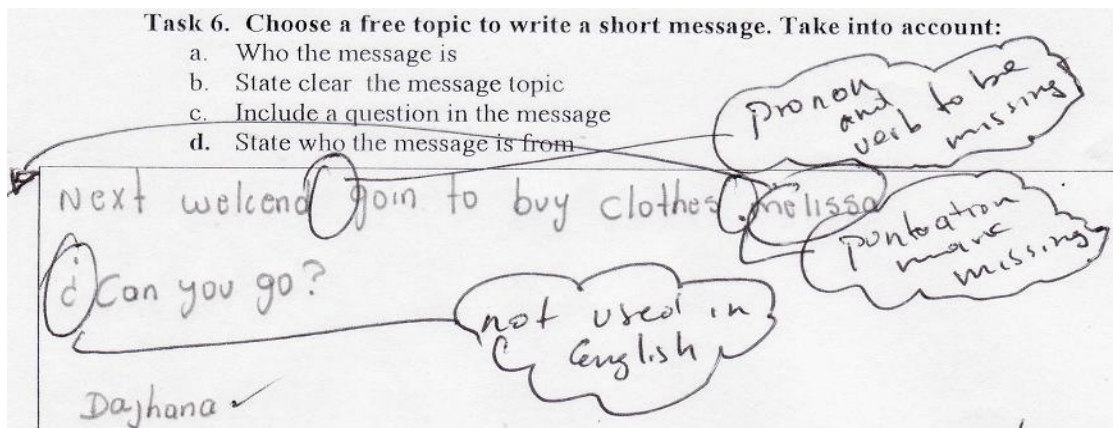 Task 6. Choose a free topic to write a short message. Take into account:
a. Who the message is
b. State clear the message topic
c. Include a question in the message
d. State who the message is from
pronoun
and
verb to be
missing
Next welcend goin to buy clothes. melissa
puntoation
mark
missing
¿Can you go?
not used in
English
Dajhana